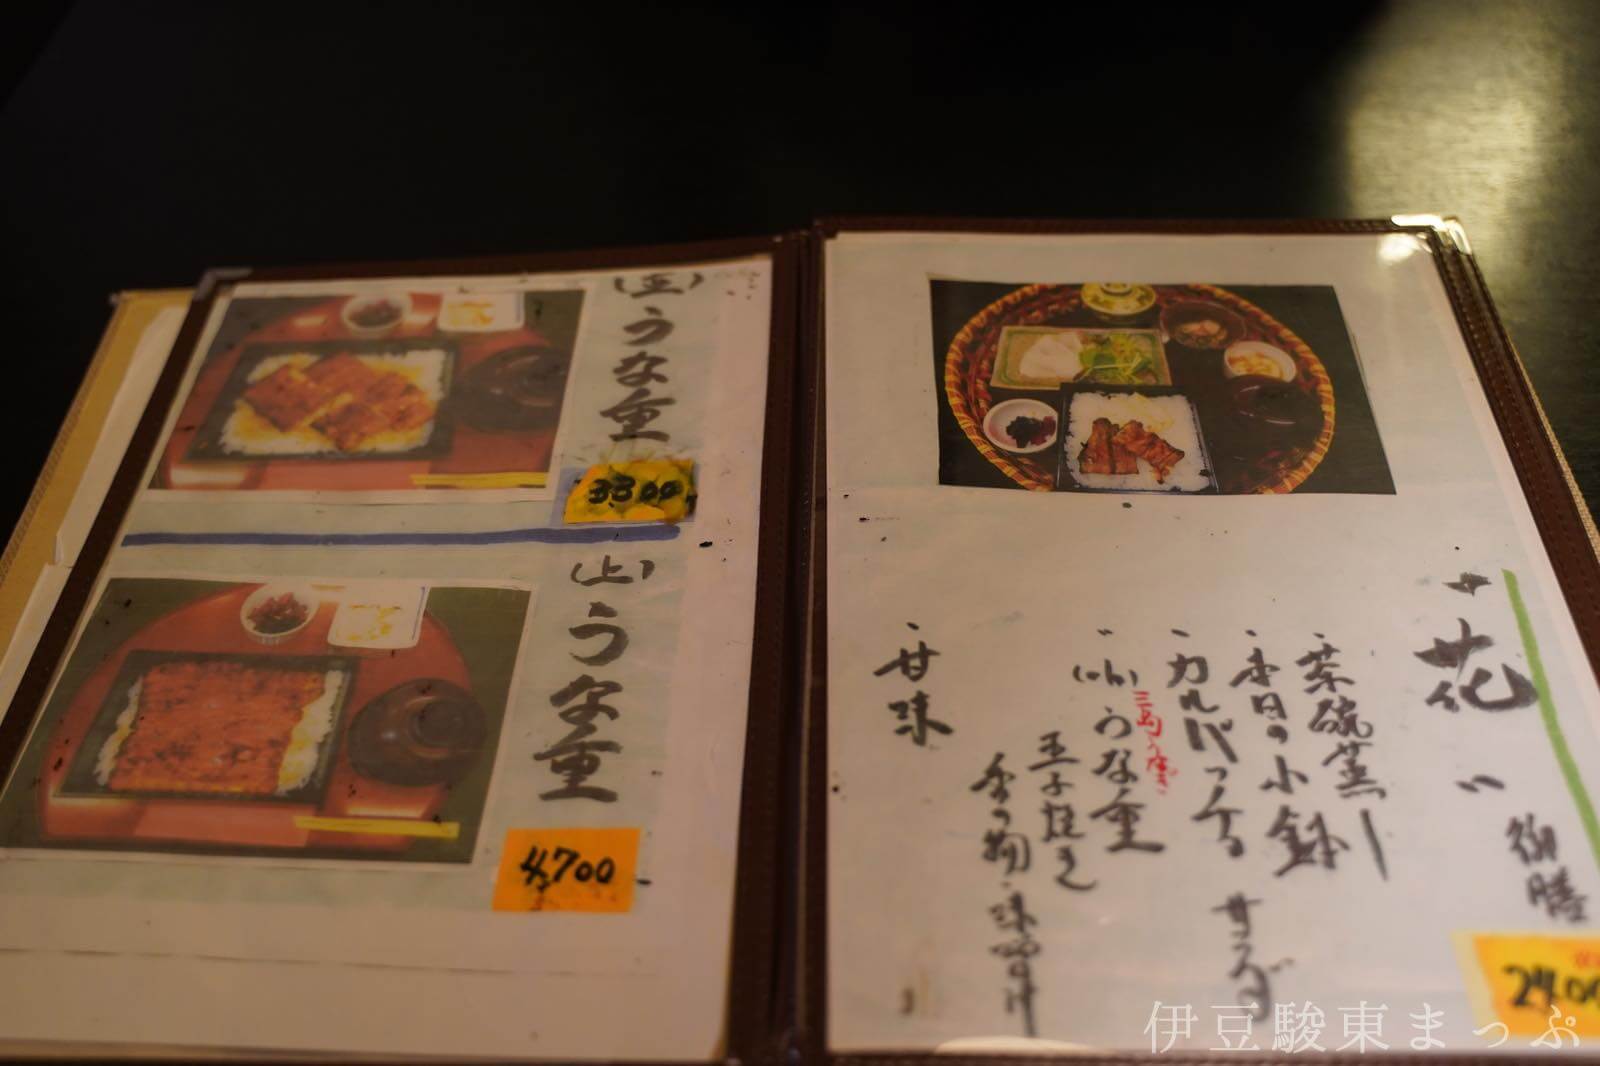 うな重
3300
(上)うな重
4700
"花"
御膳
2400
・茶碗蒸し
・本日の小鉢
・カルパッチョ サラダ
・(小)うな重
三島うなぎ
玉子焼き
香の物・味噌汁
・甘味
伊豆駿東まっぷ